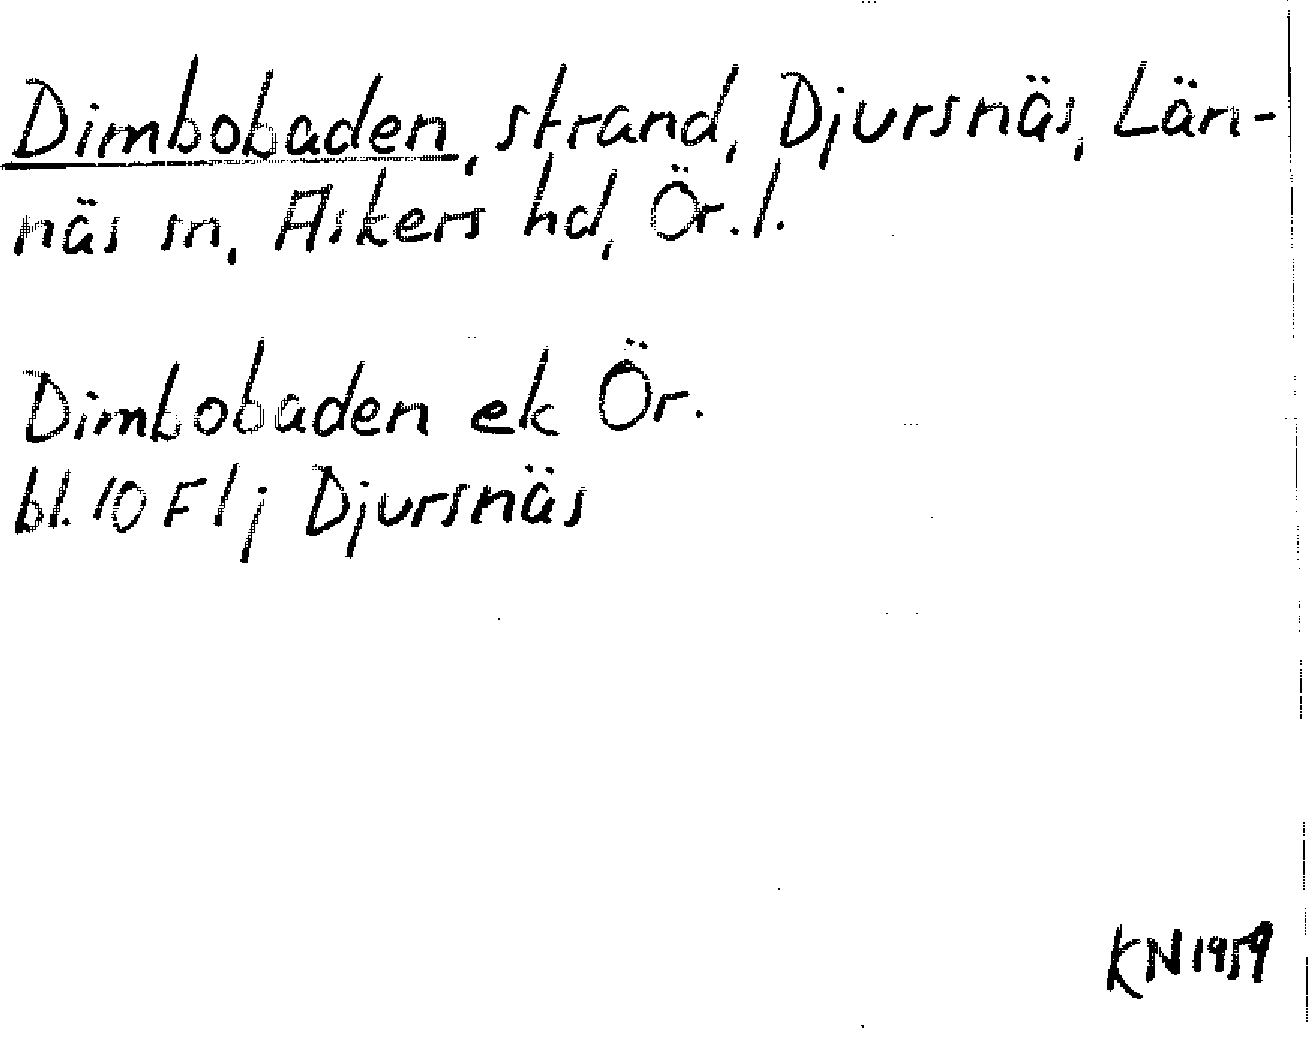 Dimbobaden, strand, Djursnäs, Län-
näs sn, Askers hd, Ör. l.
Dimbobaden ek Ör.
bl. 10 F 1 j Djursnäs
KN 1959